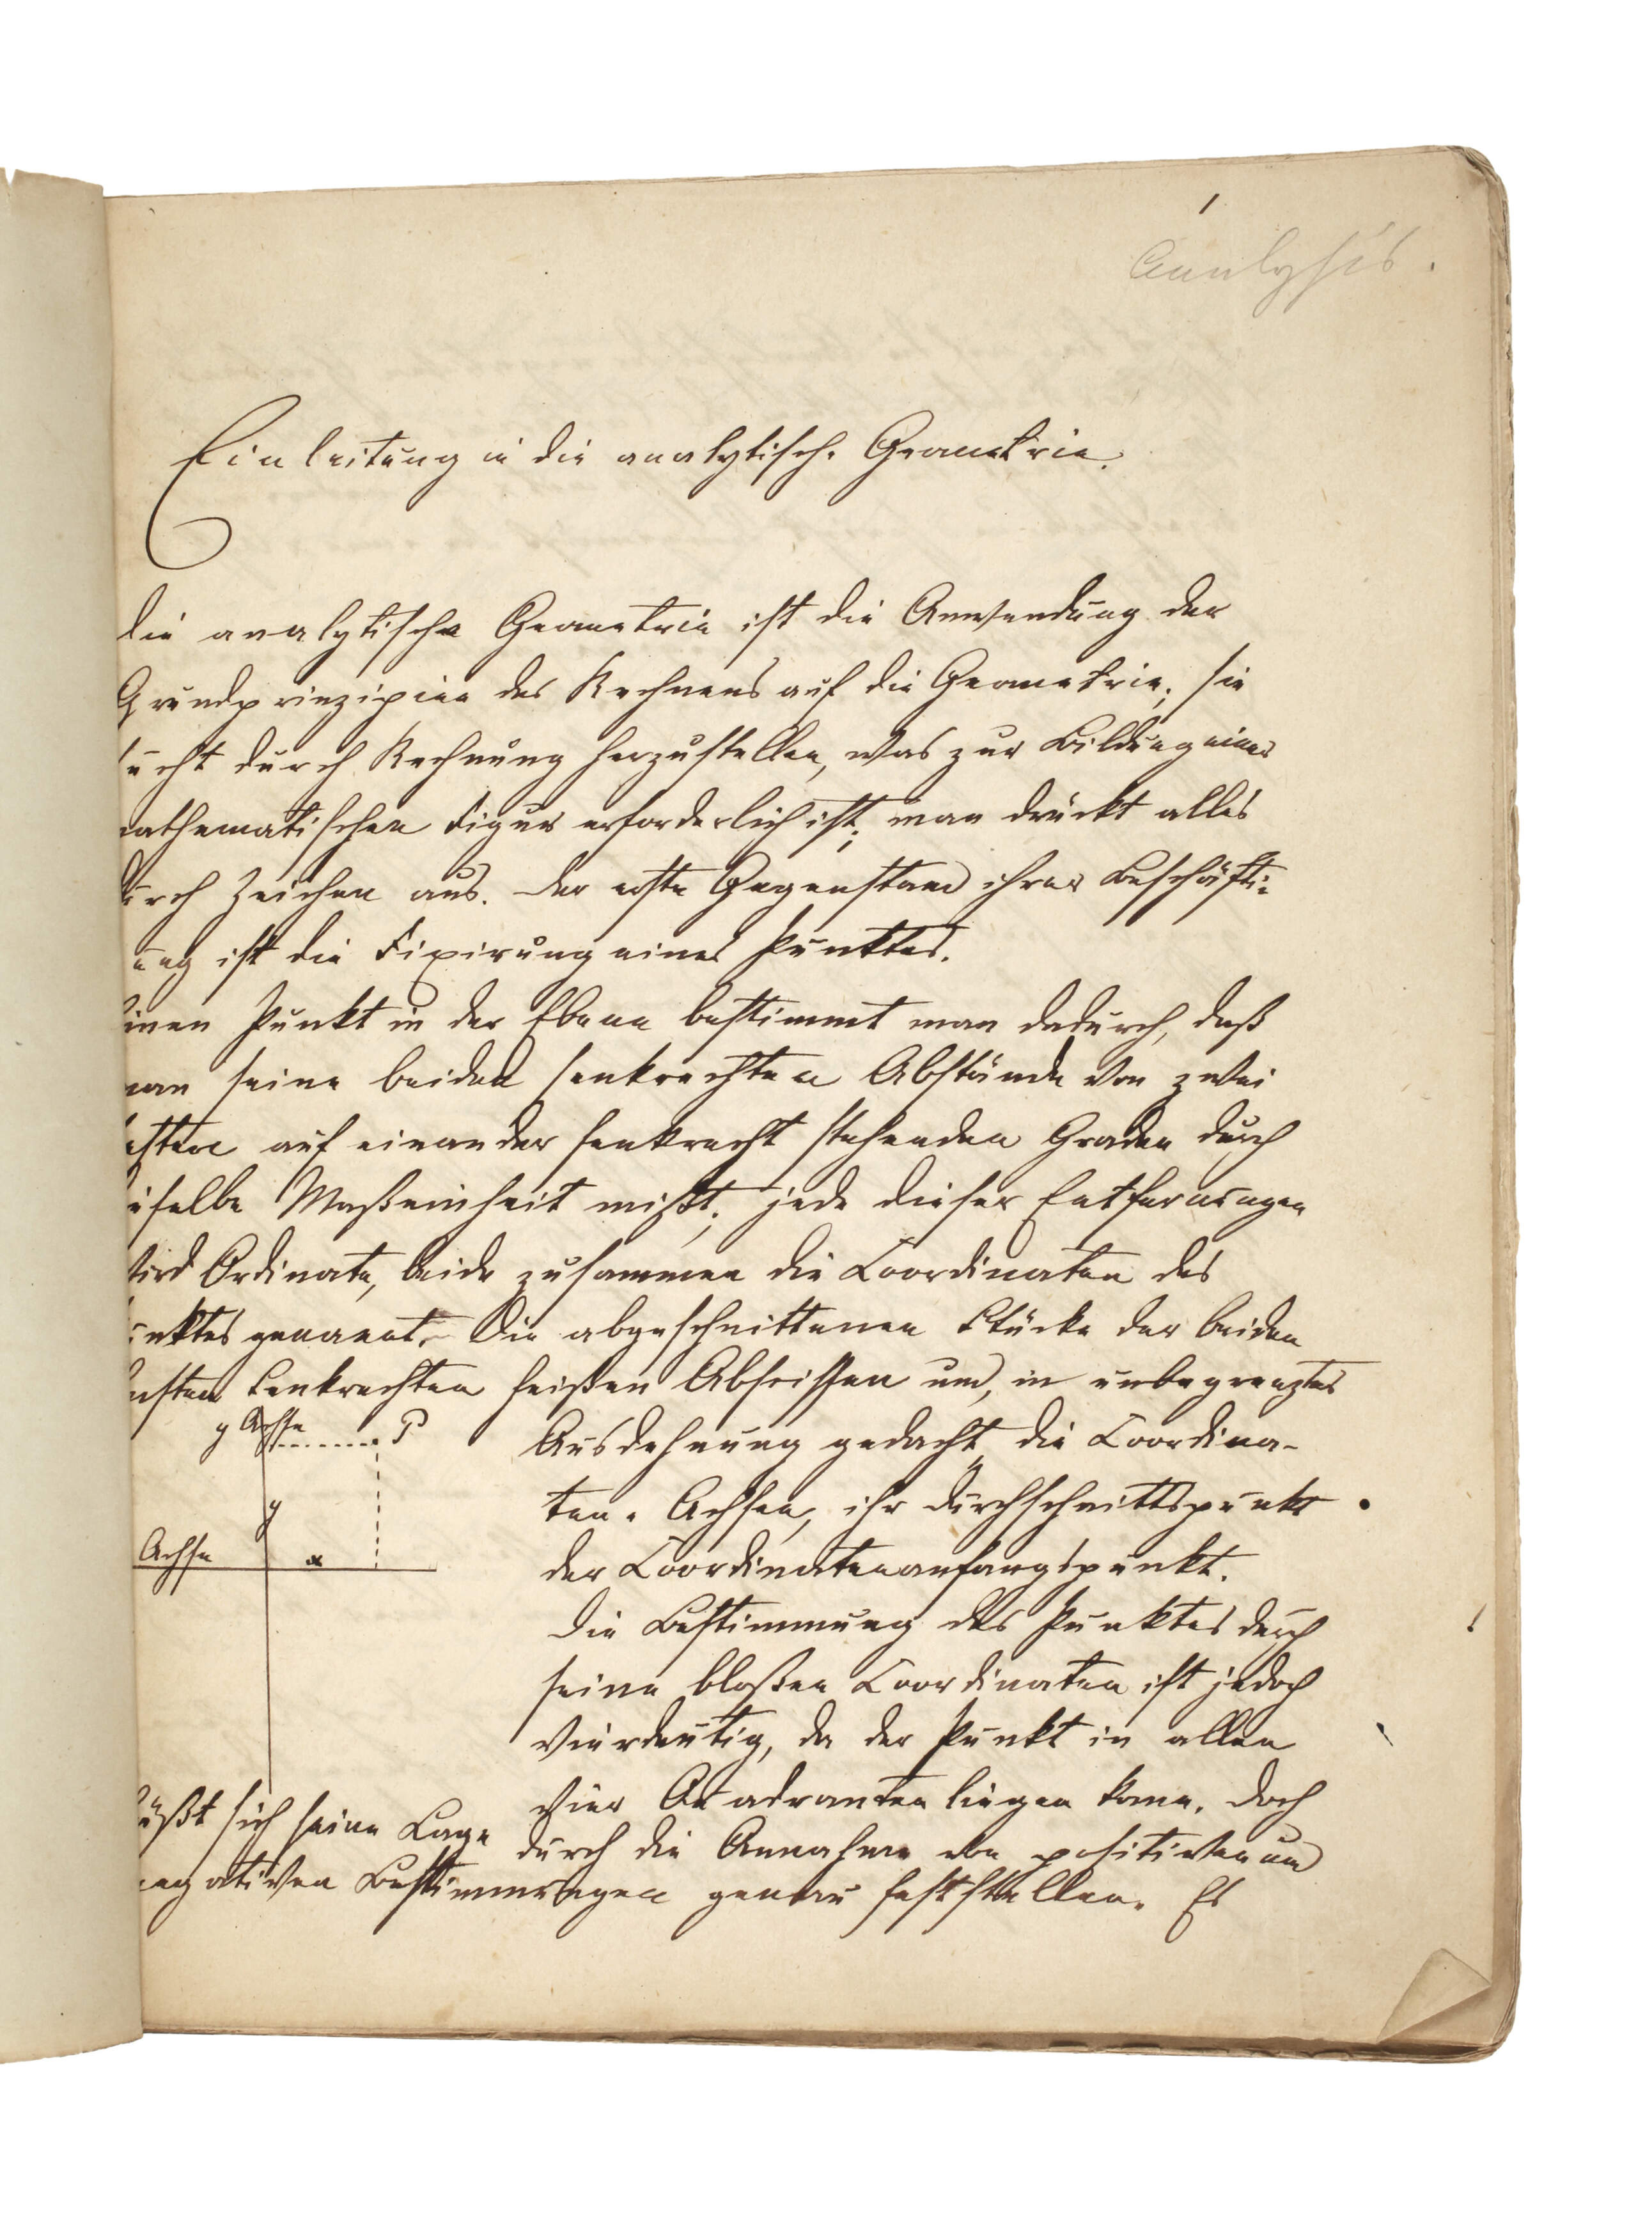 1
Analysis.
Einleitung in die analytische Geometrie.
Die analytische Geometrie ist die Anwendung der
Grundprinzipien des Rechnens auf die Geometrie; sie
sucht durch Rechnung herzustellen, was zur Bildung einer
mathematischen Figur erforderlich ist; man drückt alles
durch Zeichen aus. Der erste Gegenstand ihrer Beschäfti-
gung ist die Fixirung eines Punktes.
Einen Punkt in der Ebene bestimmt man dadurch, daß
man seine beiden senkrechten Abstände von zwei
festen auf einander senkrecht stehenden Graden durch
dieselbe Maßeinheit mißt; jede dieser Entfernungen
wird Ordinate, beide zusammen die Coordinaten des
Punktes genannt. Die abgeschnittenen Stücke der beiden
festen Senkrechten heißen Abscissen und, in unbegrenzter
y Achse P
Ausdehnung gedacht, die Coordina-
ten-Achsen, ihr Durchschnittspunkt
y
Achse x
der Coordinatenanfangspunkt.
Die Bestimmung des Punktes durch
seine bloßen Coordinaten ist jedoch
vierdeutig, da der Punkt in allen
vier Quadranten liegen kann. Doch
läßt sich seine Lage durch die Annahme von positiven und
negativen Bestimmungen genau feststellen. Es